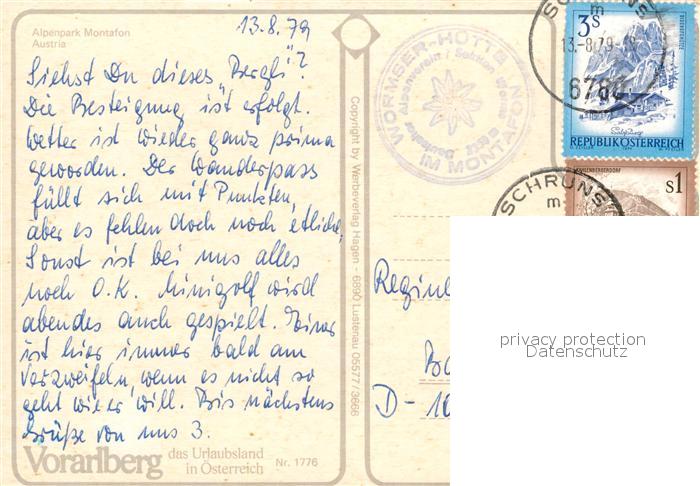 Alpenpark Montafon
Austria
13.8.79
Siehst Du dieses "Bergli"?
Die Besteigung ist erfolgt.
Wetter ist wieder ganz prima
geworden. Der Wanderpass
füllt sich mit Punkten,
aber es fehlen doch noch etliche.
Sonst ist bei uns alles
noch O.K. Minigolf wird
abendes auch gespielt. Einer
ist hier immer bald am
Verzweifeln, wenn es nicht so
geht wie er will. Bis nächstens
Grüße von uns 3.
Vorarlberg das Urlaubsland
in Österreich Nr. 1776
Copyright by Werbeverlag Hagen - 6890 Lustenau 05577/3666
WORMSER-HÜTTE
IM MONTAFON
Deutscher Alpenverein / Sektion Worms
SCHRUNS
m
13.-8.79
3S
REPUBLIK ÖSTERREICH
SCHRUNS
m
s1
Regine
D-10
privacy protection
Datenschutz